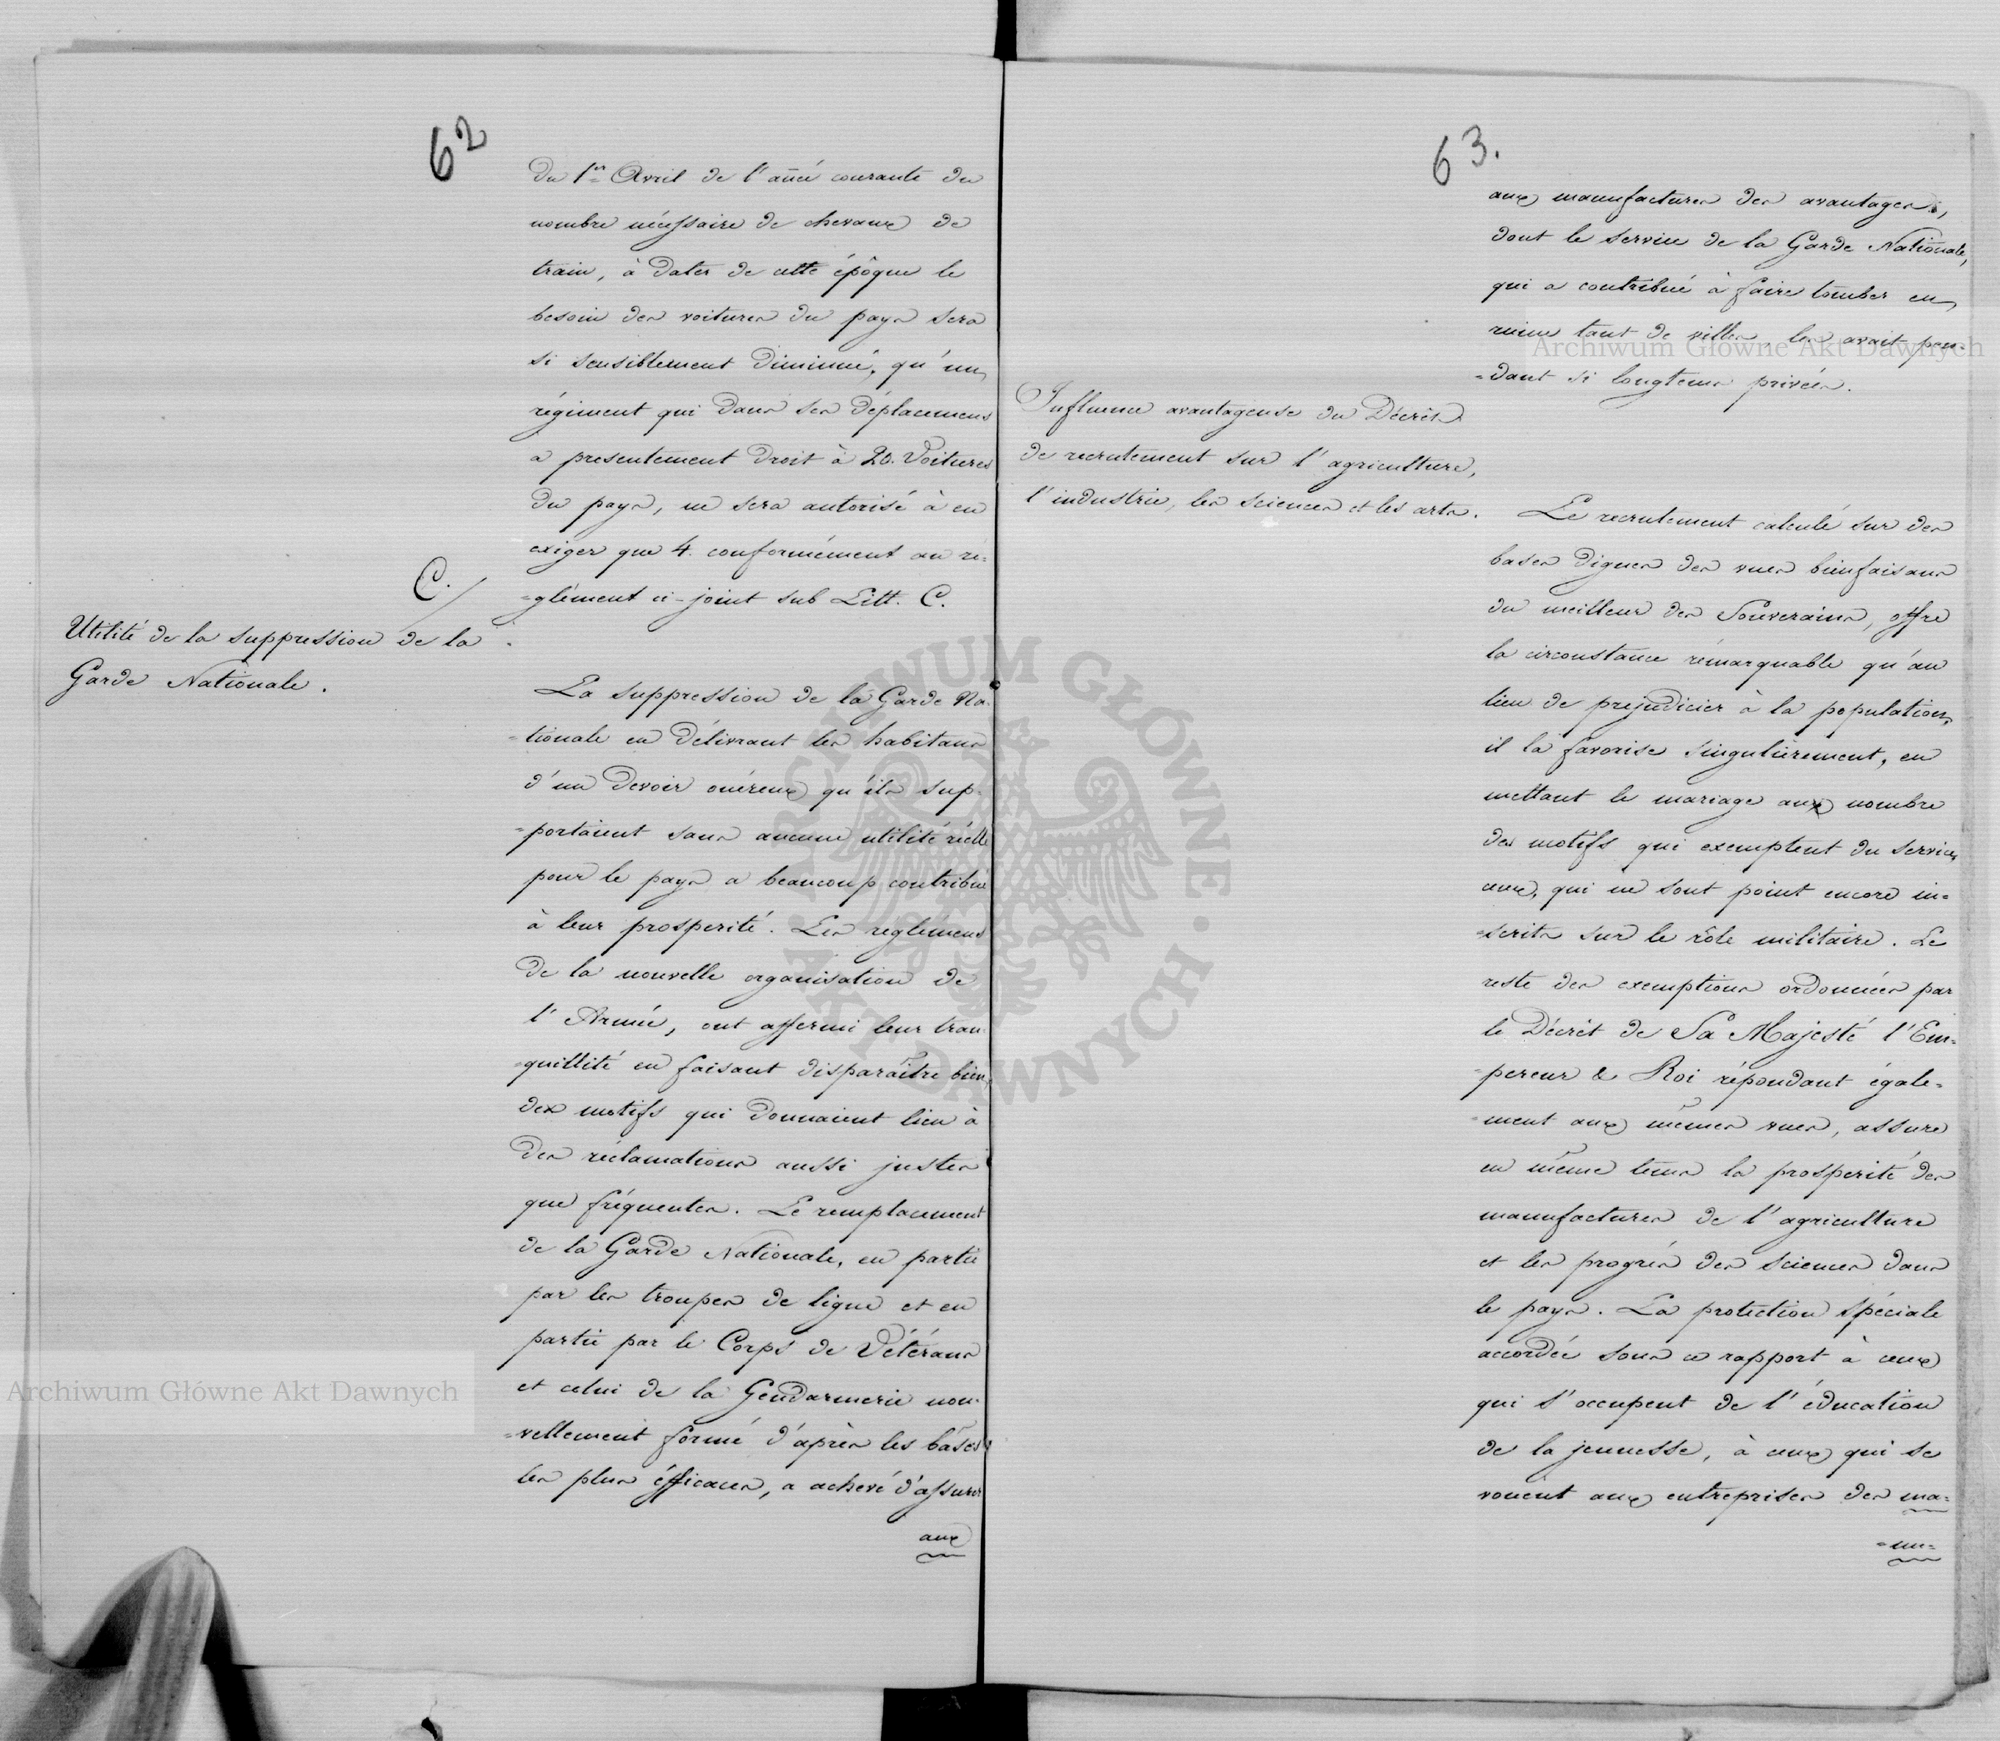 62
du 1er Avril de l'año̅é courante du
nombre nécessaire de chevaux de
train, à dater de cette époque le
besoin des voitures du pays sera
si sensiblement diminué, qu'un
régiment qui dans ses déplacemens
a presentement droit à 20. Voitures
du pays, ne sera autorisé à en
exiger que 4. conformément au ré=
=glément ci-joint sub Litt. C.
C.
Utilité de la suppression de la
Garde Nationale.
La suppression de la Garde Na=
=tionale en délivrant les habitans
d'un devoir onéreux qu'ils sup=
=portaient sans aucune utilité réelle
pour le pays a beaucoup contribué
à leur prosperité. Les reglémens
de la nouvelle organisation de
l'Armée, ont affermi leur tran=
=quillité en faisant disparaître bien
des motifs qui donnaient lieu à
des réclamations aussi justes
que fréquentes. Le remplacement
de la Garde Nationale, en partie
par les troupes de ligne et en
partie par le Corps de Vétérans
et celui de la Gendarmerie nou=
=vellement formé d'après les bases
les plus éfficaces, a achevé d'assurer
aux
63.
aux manufactures des avantages,
dont le service de la Garde Nationale,
qui a contribué à faire tomber en
ruine tant de villes, les avait pen=
=dant si longtems privées.
Influence avantageuse du Décrèt
de recrutement sur l'agriculture,
l'industrie, les sciences et les arts.
Le recrutement calculé sur des
bases dignes des vues bienfaisans
du meilleur des Souverains, offre
la circonstance rémarquable qu'au
lieu de prejudicier à la population,
il la favorise singulièrement, en
mettant le mariage aux nombre
des motifs qui exemptent du service,
ceux, qui ne sont point encore in=
=scrits sur le rôle militaire. Le
reste des exemptions ordonnées par
le Décrèt de Sa Majesté l'Em=
=pereur & Roi répondant égale=
=ment aux mêmes vues, assure
en même tems la prosperité des
manufactures de l'agriculture
et les progrès des sciences dans
le pays. La protection spéciale
accordée sous ce rapport à ceux
qui s'occupent de l'éducation
de la jeunesse, à ceux qui se
vouent aux entreprises des ma=
=nu=
Archiwum Główne Akt Dawnych
Archiwum Główne Akt Dawnych
ARCHIWUM GŁÓWNE · AKT DAWNYCH ·